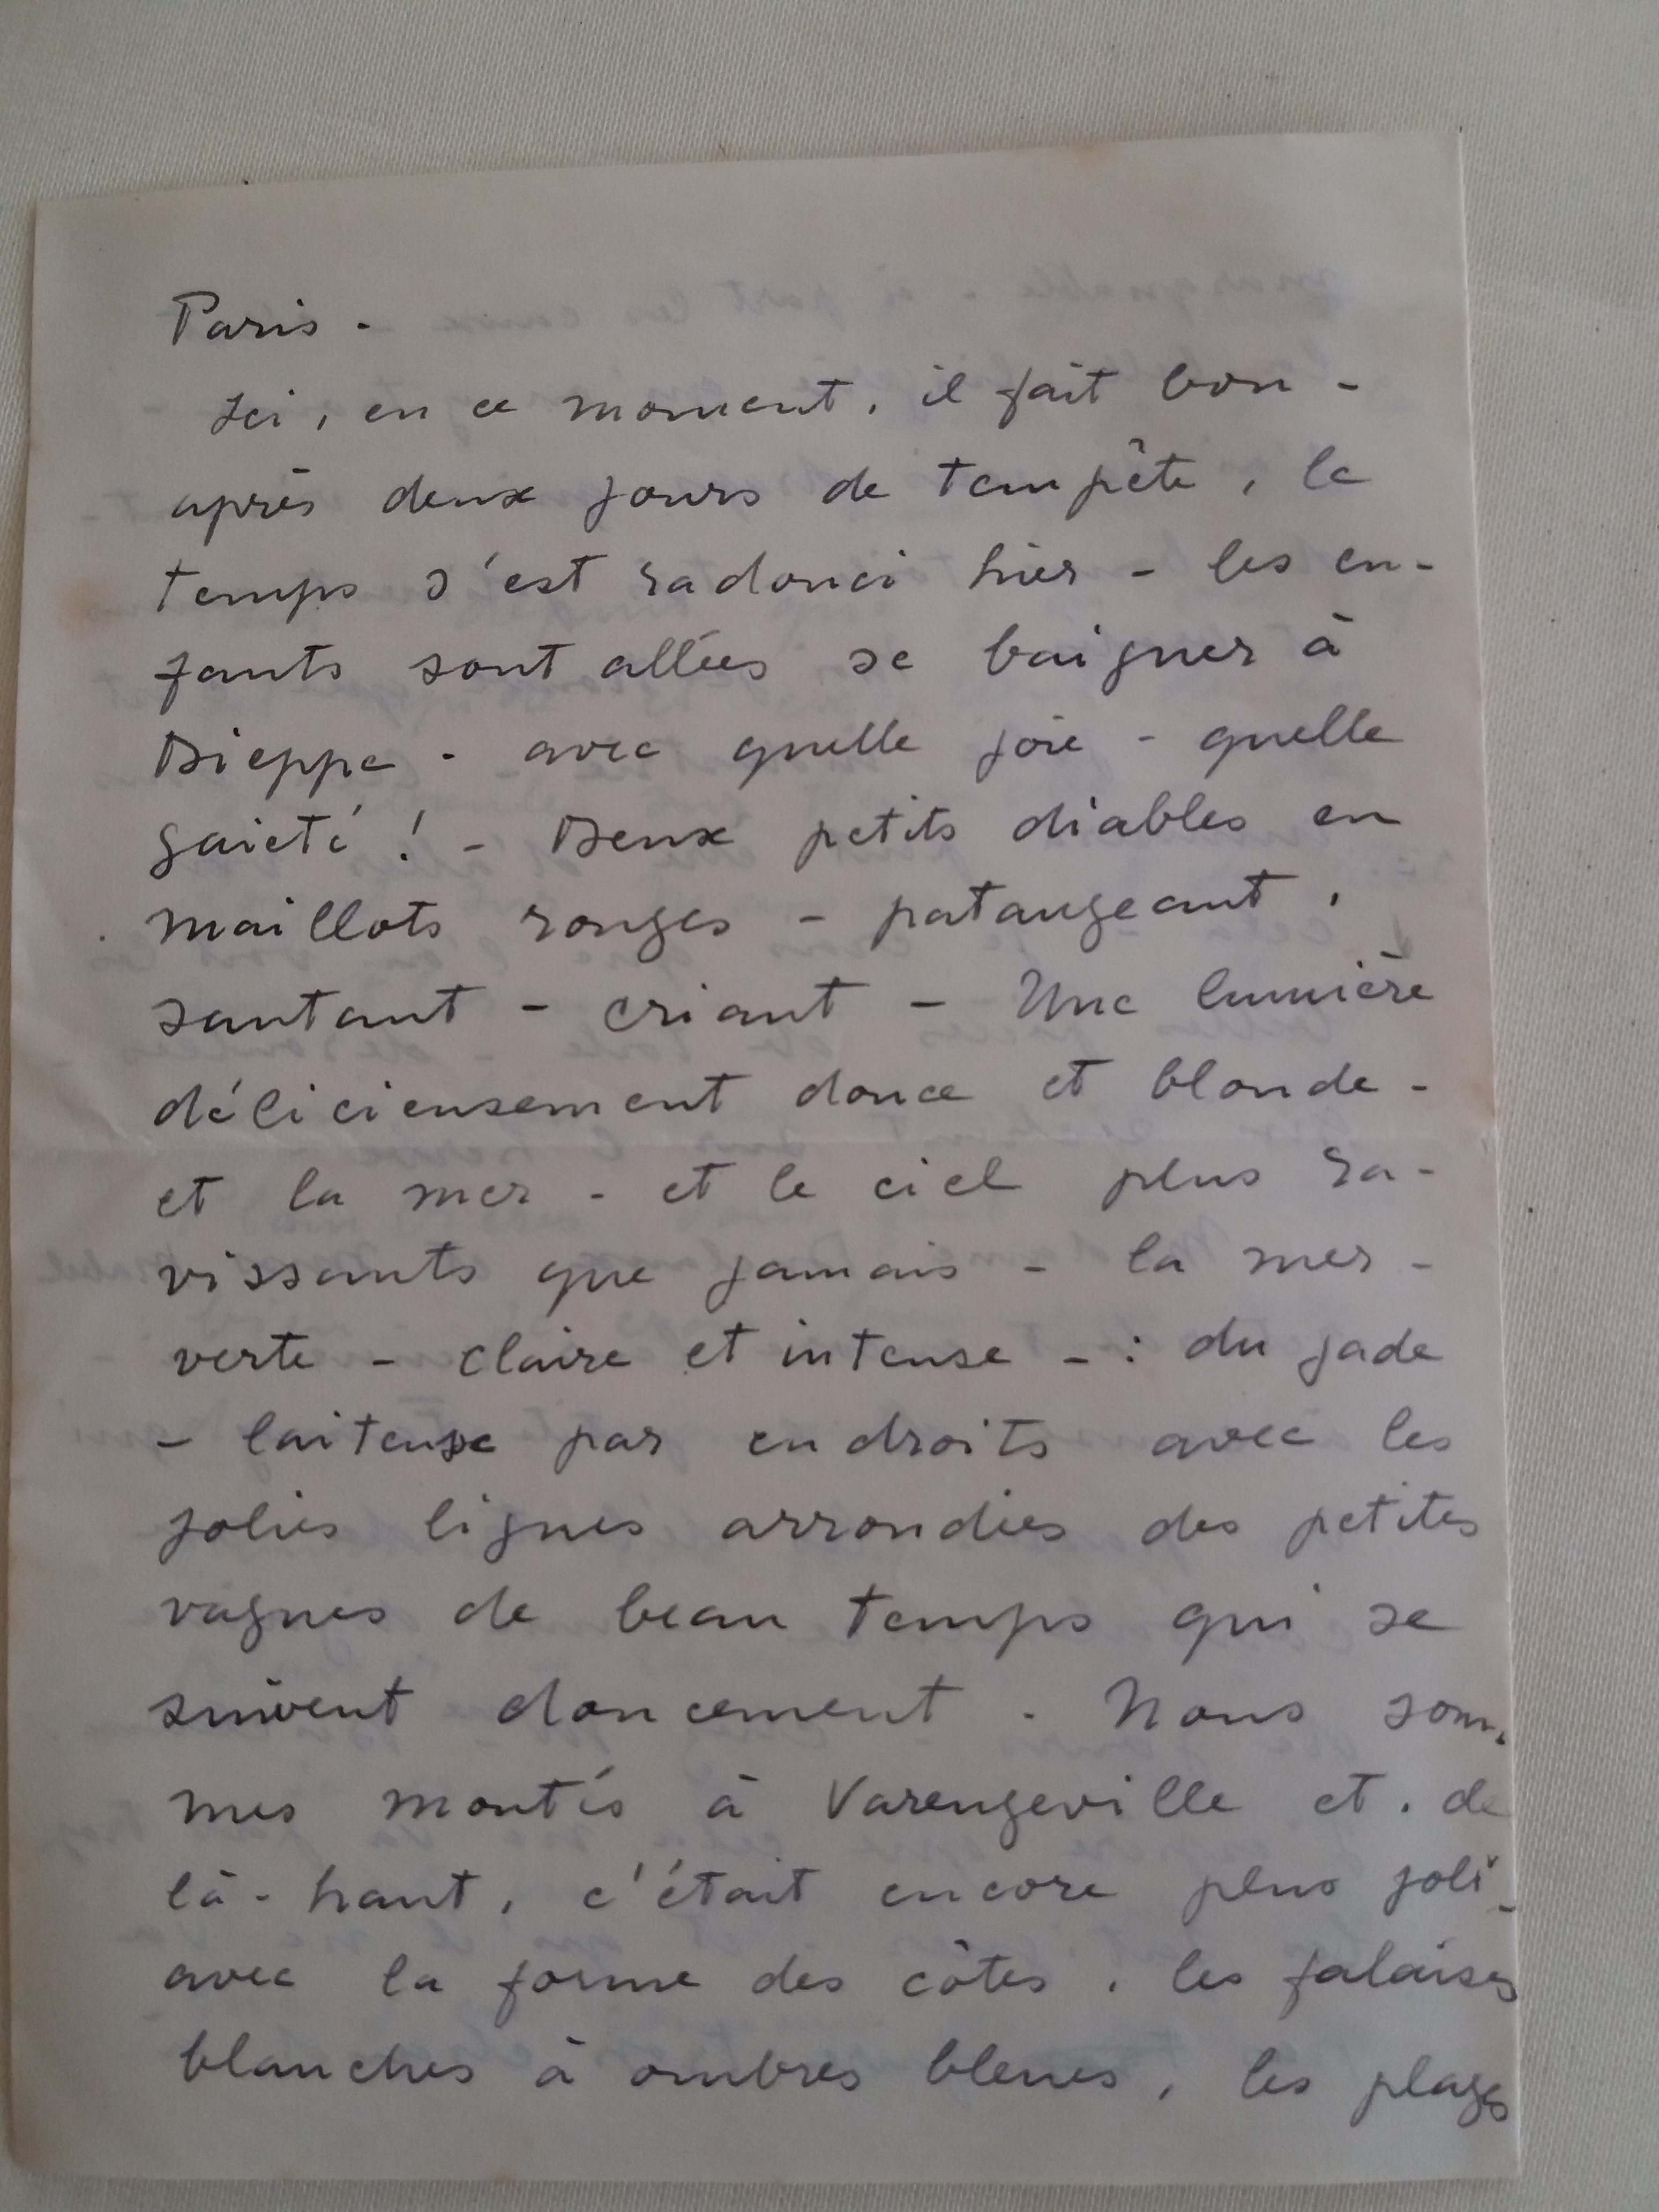 Paris -
Ici, en ce moment, il fait bon -
après deux jours de tempête, le
temps s'est radouci hier - les en-
fants sont allées se baigner à
Dieppe - avec quelle joie - quelle
gaieté ! - Deux petits diables en
maillots rouges - pataugeant,
sautant - criant - Une lumière
délicieusement douce et blonde -
et la mer - et le ciel plus ra-
vissants que jamais - la mer -
verte - claire et intense - : du jade
- laiteuse par endroits avec les
jolies lignes arrondies des petites
vagues de beau temps qui se
suivent doucement - Nous som-
mes montés à Varengeville et. de
là-haut, c'était encore plus joli -
avec la forme des côtes, les falaises
blanches à ombres bleues, les plages